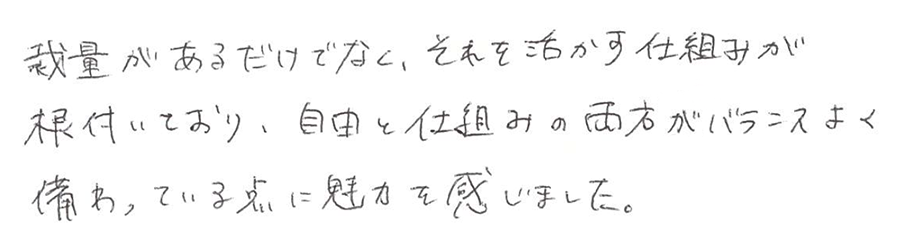 裁量があるだけでなく、それを活かす仕組みが
根付いており、自由と仕組みの両方がバランスよく
備わっている点に魅力を感じました。